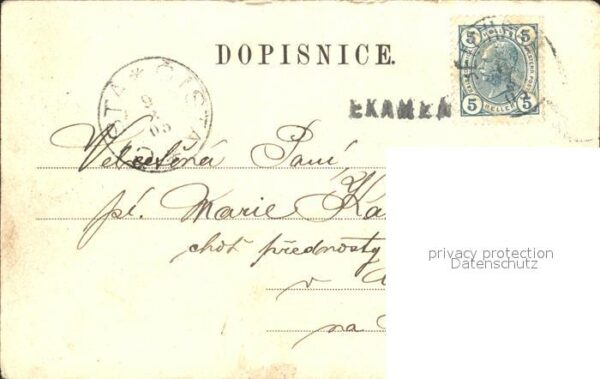 DOPISNICE.
5 5
5 HELLER 5
ČISTÁ * ČISTA
EKAMEN
Velectěná Paní,
pí. Marie Ka
choť přednosty
v
na
privacy protection
Datenschutz